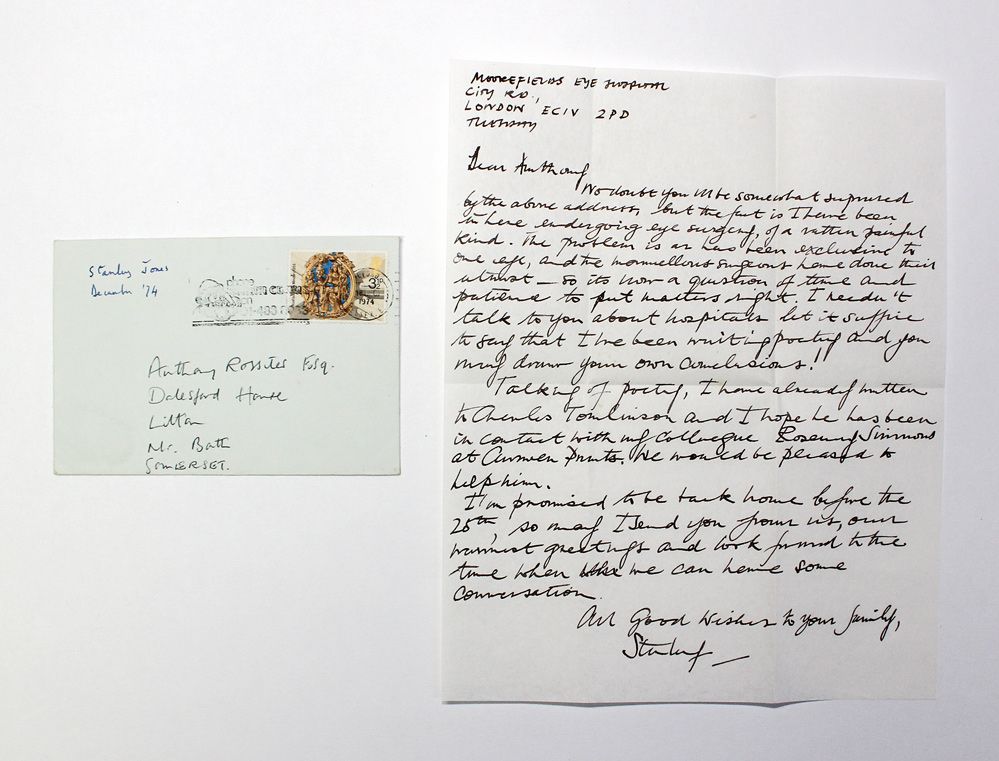 Stanley Jones
December '74
please
1974
3½P
Anthony Rossiter Esq.
Dalesford House
Litton
Nr. Bath
SOMERSET.
MOOREFIELDS EYE HOSPITAL
CITY RD.,
LONDON EC1V 2PD
Dear Anthony
No doubt you'll be somewhat surprised
by the above address, but the fact is I have been
in here undergoing eye surgery, of a rather painful
kind. The problem is as has been exclusive to
one eye, and the marvellous surgeons have done their
utmost – so its now a question of time and
patience to put matters right. I needn't
talk to you about hospitals let it suffice
to say that I've been writing poetry and you
may draw your own conclusions!!
Talking of poetry, I have already written
to Charles Tomlinson and I hope he has been
in contact with my colleague Simmons
at Curwen Prints. He would be pleased to
help him.
I'm promised to be back home before the
25th, so may I send you from us, our
warmest greetings and look forward to the
time when we can have some
conversation.
All Good Wishes to your family,
Stanley